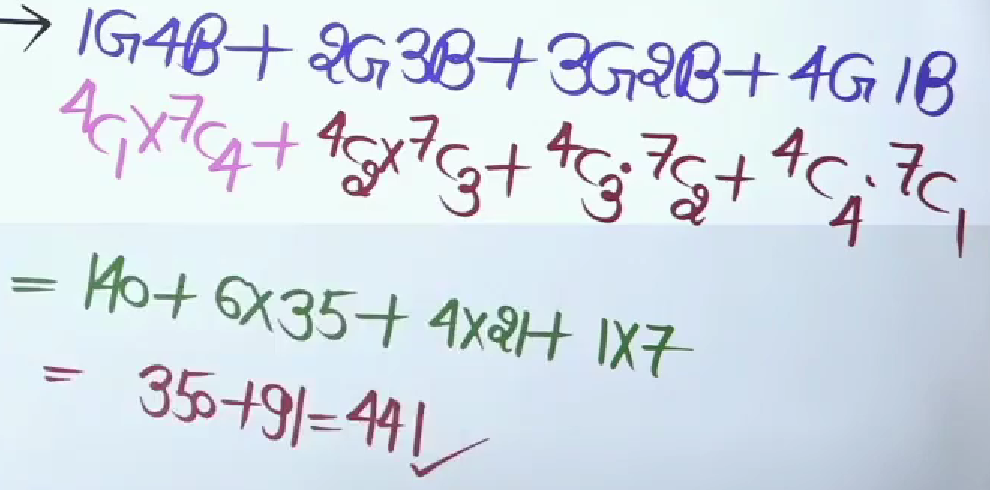 → 1G4B + 2G3B + 3G2B + 4G1B
⁴C₁ × ⁷C₄ + ⁴C₂ × ⁷C₃ + ⁴C₃ · ⁷C₂ + ⁴C₄ · ⁷C₁
= 140 + 6×35 + 4×21 + 1×7
= 350 + 91 = 441 ✓